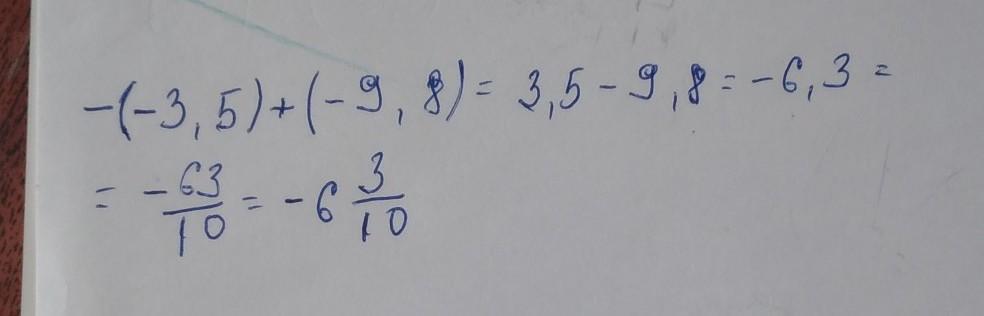 -(-3,5)+(-9,8)= 3,5-9,8=-6,3=
= -63/10 = -6 3/10